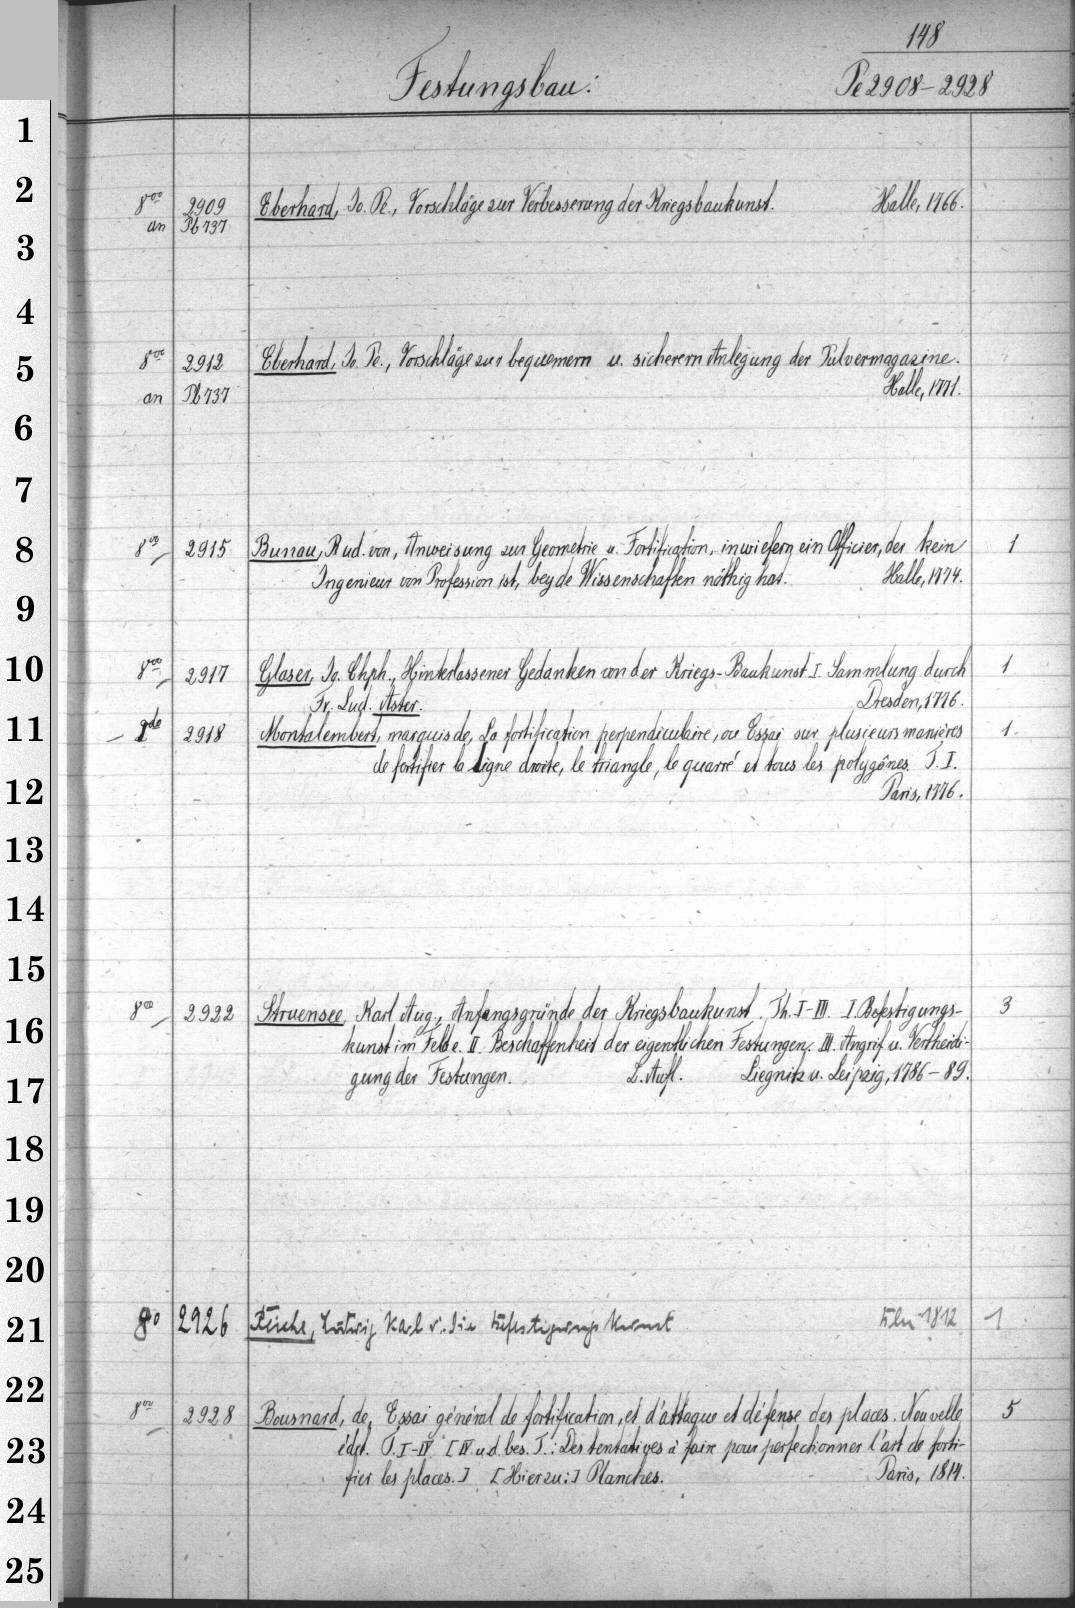 148
Festungsbau:
Pe 2908-2928
1
2
3
4
5
6
7
8
9
10
11
12
13
14
15
16
17
18
19
20
21
22
23
24
25
8vo 2909 Eberhard, Jo. Pe., Vorschläge zur Verbesserung der Kriegsbaukunst. Halle, 1766.
an Pb 737
8vo 2912 Eberhard, Jo. Pe., Vorschläge zur bequemern u. sicherern Anlegung der Pulvermagazine.
an Pb 737 Halle, 1771.
8vo 2915 Bunau, Rud. von, Anweisung zur Geometrie u. Fortification, inwiefern ein Officier, der kein 1
Ingenieur von Profession ist, beyde Wissenschaften nöthig hat. Halle, 1774.
8vo 2917 Glaser, Jo. Chph., Hinterlassener Gedanken von der Kriegs-Baukunst I. Sammlung durch 1
Fr. Lud. Aster. Dresden, 1776.
2918 Montalembert, marquis de, La fortification perpendiculaire, ou Essai sur plusieurs manières 1.
de fortifier la ligne droite, le triangle, le quarré et tous les polygônes T. I.
Paris, 1776.
8vo 2922 Struensee, Karl Aug., Anfangsgründe der Kriegsbaukunst. Th. I-III. I. Befestigungs- 3
kunst im Felde. II. Beschaffenheit der eigentlichen Festungen. III. Angrif u. Vertheidi-
gung der Festungen. 2. Aufl. Liegnitz u. Leipzig, 1786-89.
8o 2926 Reiche, Ludwig Karl v. Die Befestigungs Kunst 1812 1
8vo 2928 Bousmard, de, Essai général de fortification, et d'attaque et défense des places. Nouvelle 5
édit. T. I-IV [IV u.d. bes. T.: Des tentatives à faire pour perfectionner l'art de forti-
fier les places.] [Hierzu:] Planches. Paris, 1814.